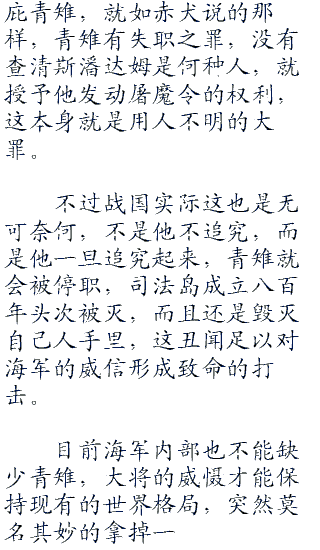 庇青雉，就如赤犬说的那
样，青雉有失职之罪，没有
查清斯潘达姆是何种人，就
授予他发动屠魔令的权利，
这本身就是用人不明的大
罪。
不过战国实际这也是无
可奈何，不是他不追究，而
是他一旦追究起来，青雉就
会被停职，司法岛成立八百
年头次被灭，而且还是毁灭
自己人手里，这丑闻足以对
海军的威信形成致命的打
击。
目前海军内部也不能缺
少青雉，大将的威慑才能保
持现有的世界格局，突然莫
名其妙的拿掉一